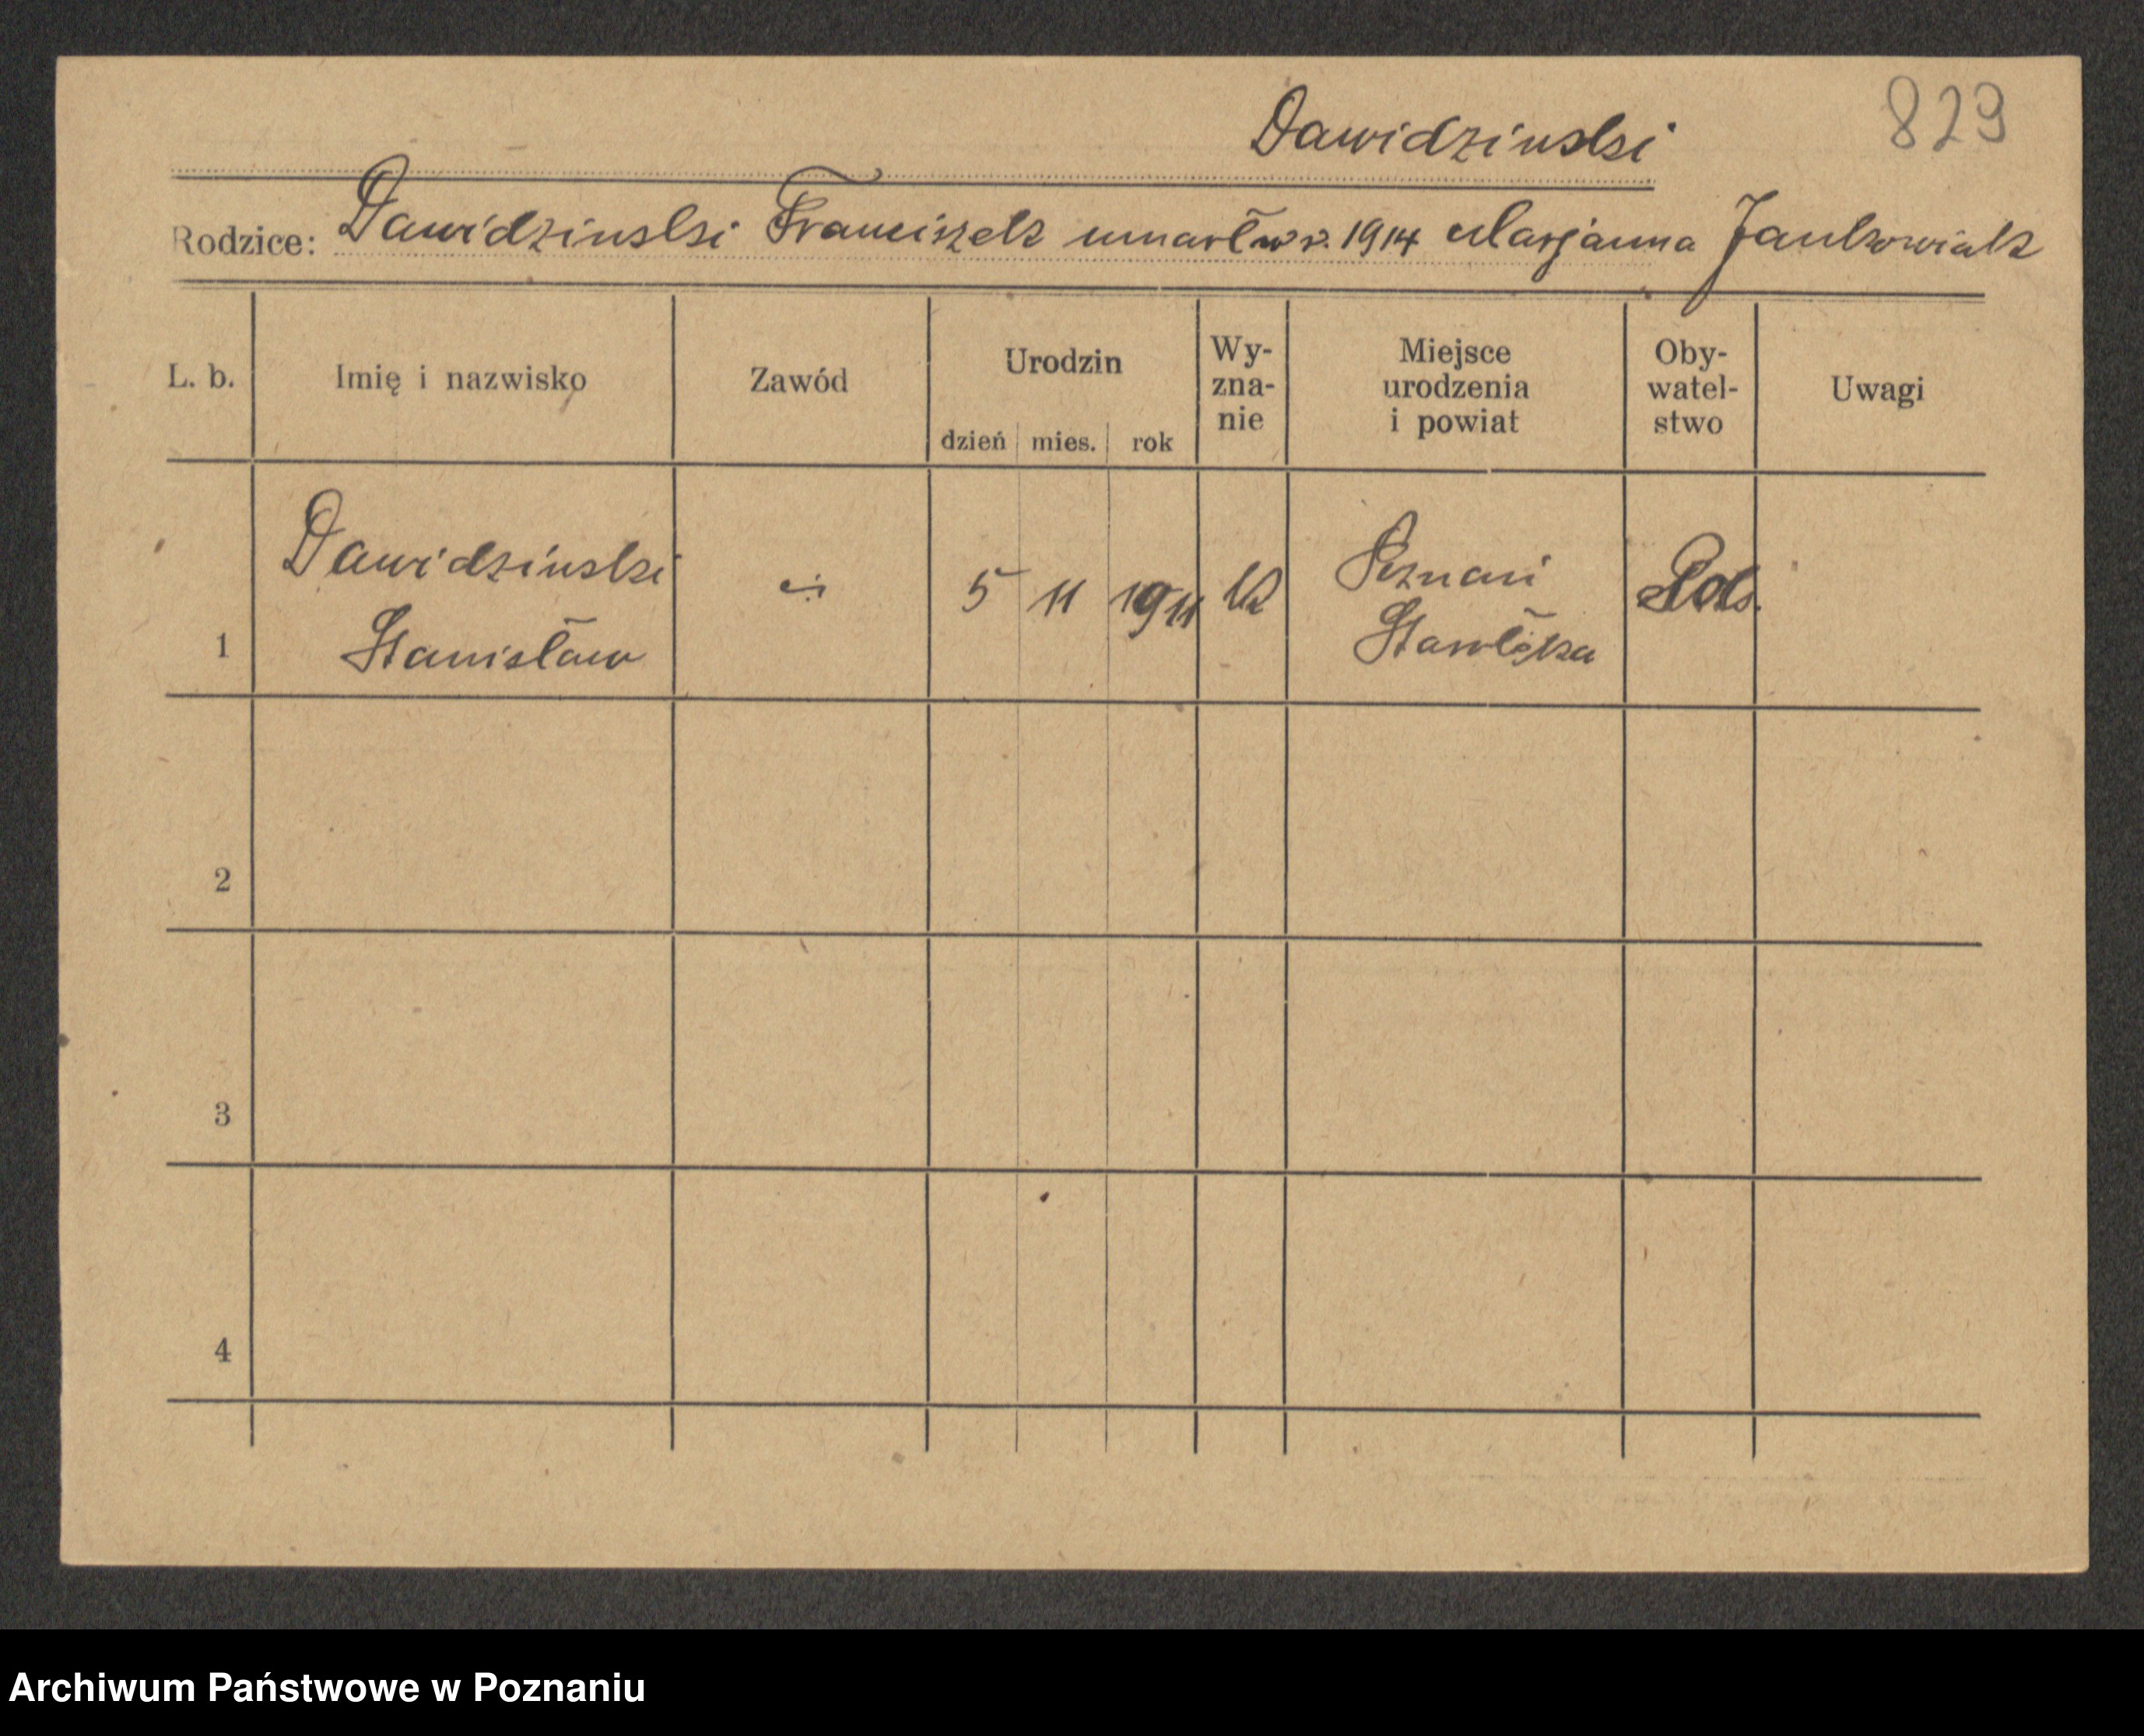 Dawidzinski 829
Rodzice: Dawidzinski Franciszek umarł w r. 1914 Marjanna Jankowiak
L. b. Imię i nazwisko Zawód Urodzin dzień mies. rok Wy-zna-nie Miejsce urodzenia i powiat Oby-watel-stwo Uwagi
Dawidzinski 5 11 1911 k Poznań Pols.
1 Stanisław Starołęka
2
3
4
Archiwum Państwowe w Poznaniu